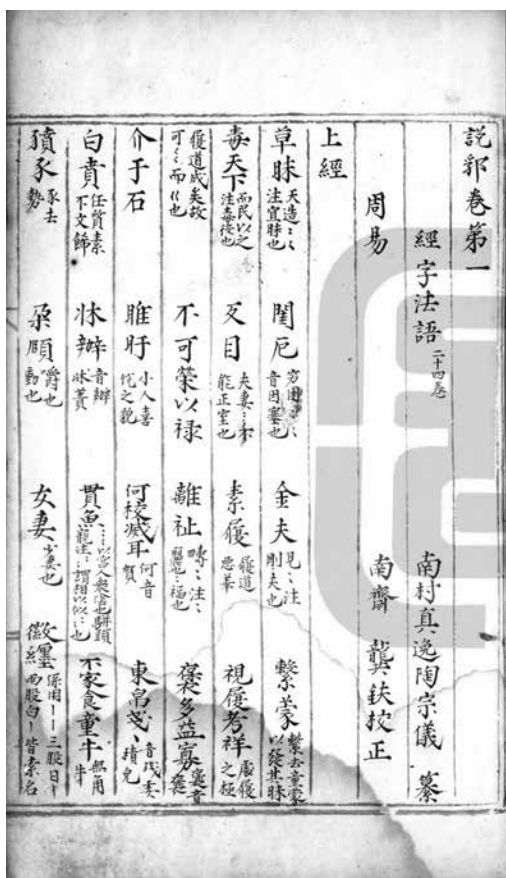 説郛卷第一
經字法語 二十四卷 南村真逸陶宗儀 纂
周易 南齋 龔鈇校正
上經
草昧 天造〻〻注宜昧也 閨厄 音因塞也 金夫 見〻注剛夫也 繫蒙 繫去童蒙以發其昧
毒天下 而民以之注毒役也 反目 夫妻〻〻不能正室也 素履 履道惡華 視履考祥 處履之極
履道成矣故可〻而〻也 不可榮以祿 離祉 疇〻注〻麗也〻福也 裒多益寡
介于石 睢盱 小人喜悅之貌 何校滅耳 何音賀 束帛戔〻 音殘委積皃
白賁 任質素不文飾 牀辨 音辦牀簀 貫魚 不家食 童牛 無角牛
豶豕 豕去勢 朶頤 嚼也動也 女妻 少妻也 徽纆 係用〡〡三股曰〡兩股曰〡皆索名